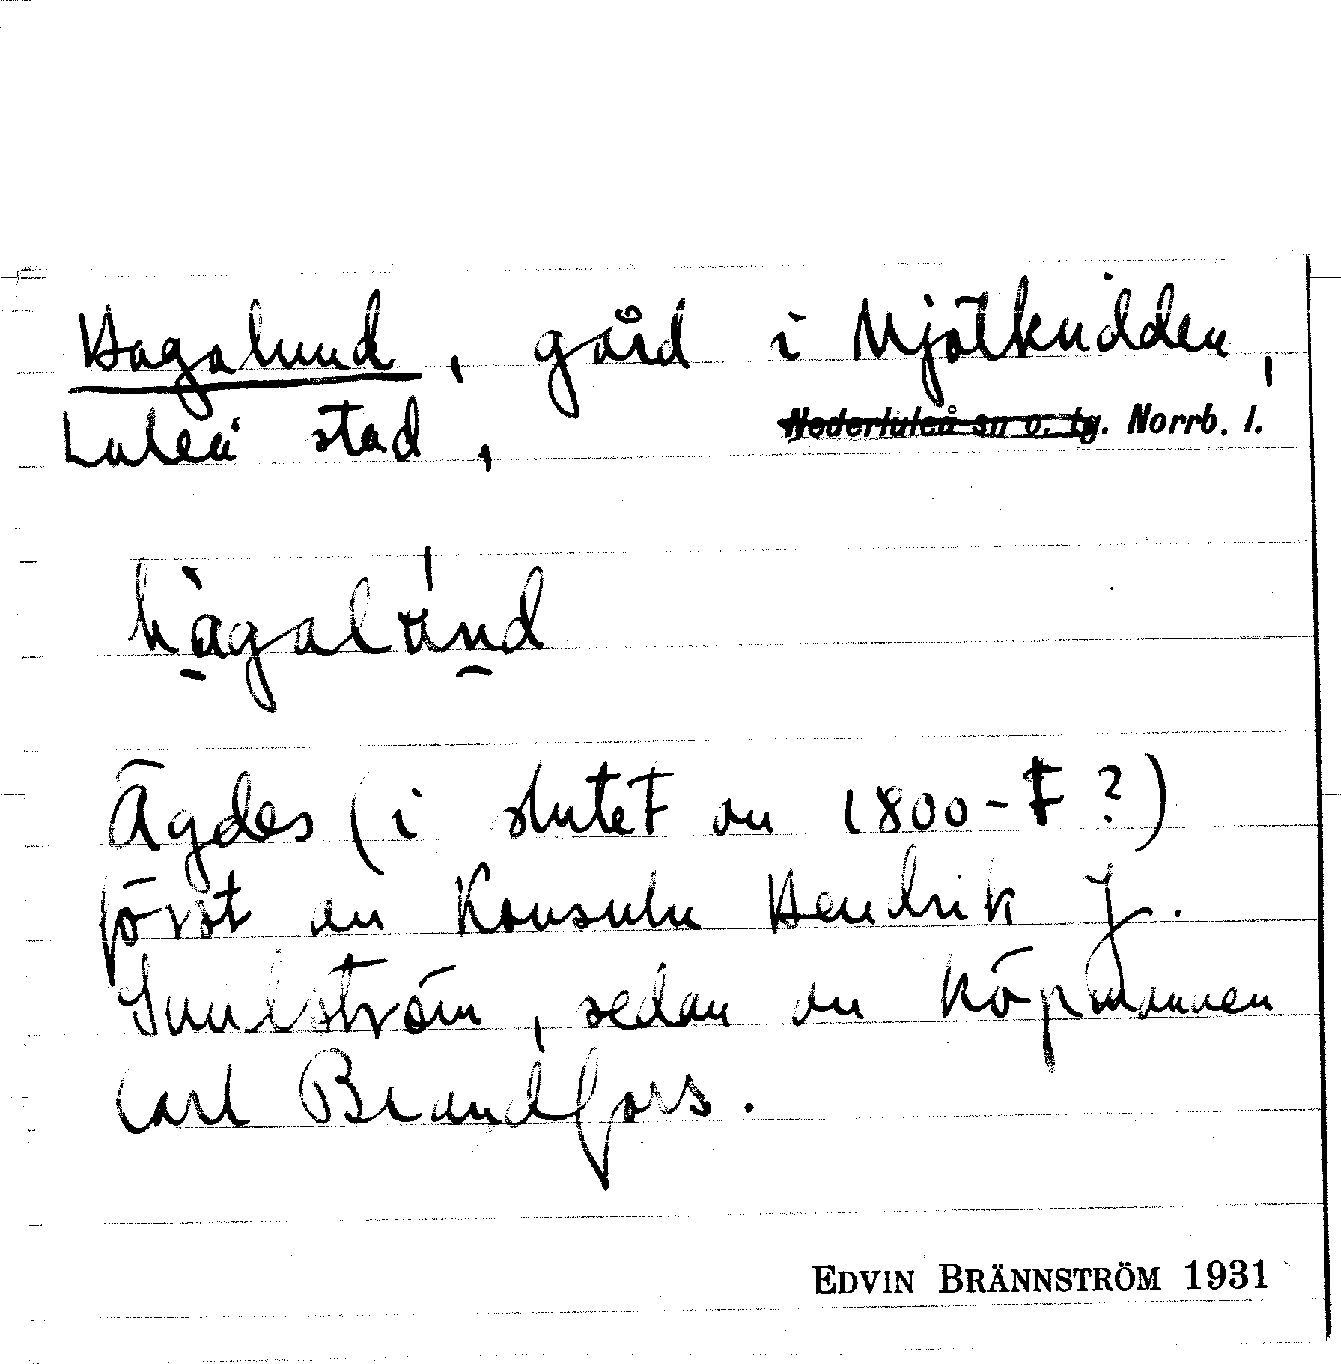 Hagalund, gård i Mjölkudden,
Luleå stad, Nederluleå sn o. tg. Norrb. l.
hàgalúnd
Ägdes (i slutet av 1800-t?)
först av Konsuln Hendrik J.
Sundström, sedan av köpmannen
Carl Brandfors.
EDVIN BRÄNNSTRÖM 1931